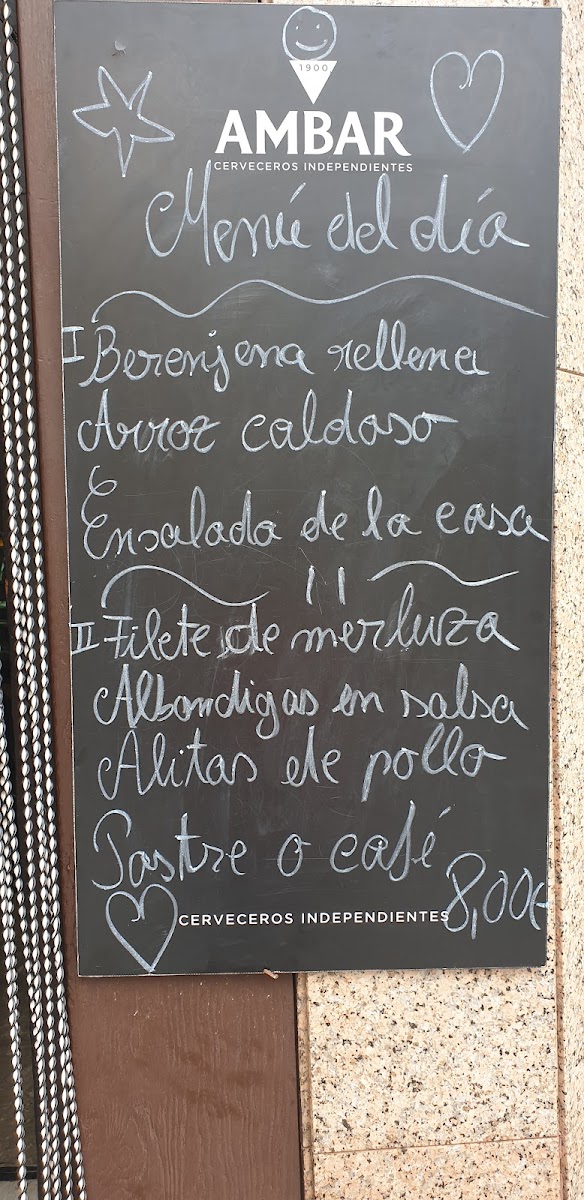 1900
AMBAR
CERVECEROS INDEPENDIENTES
Menú del día
I Berenjena rellena
Arroz caldoso
Ensalada de la casa
II Filete de merluza
Albondigas en salsa
Alitas de pollo
Postre o café
CERVECEROS INDEPENDIENTES 8,00€